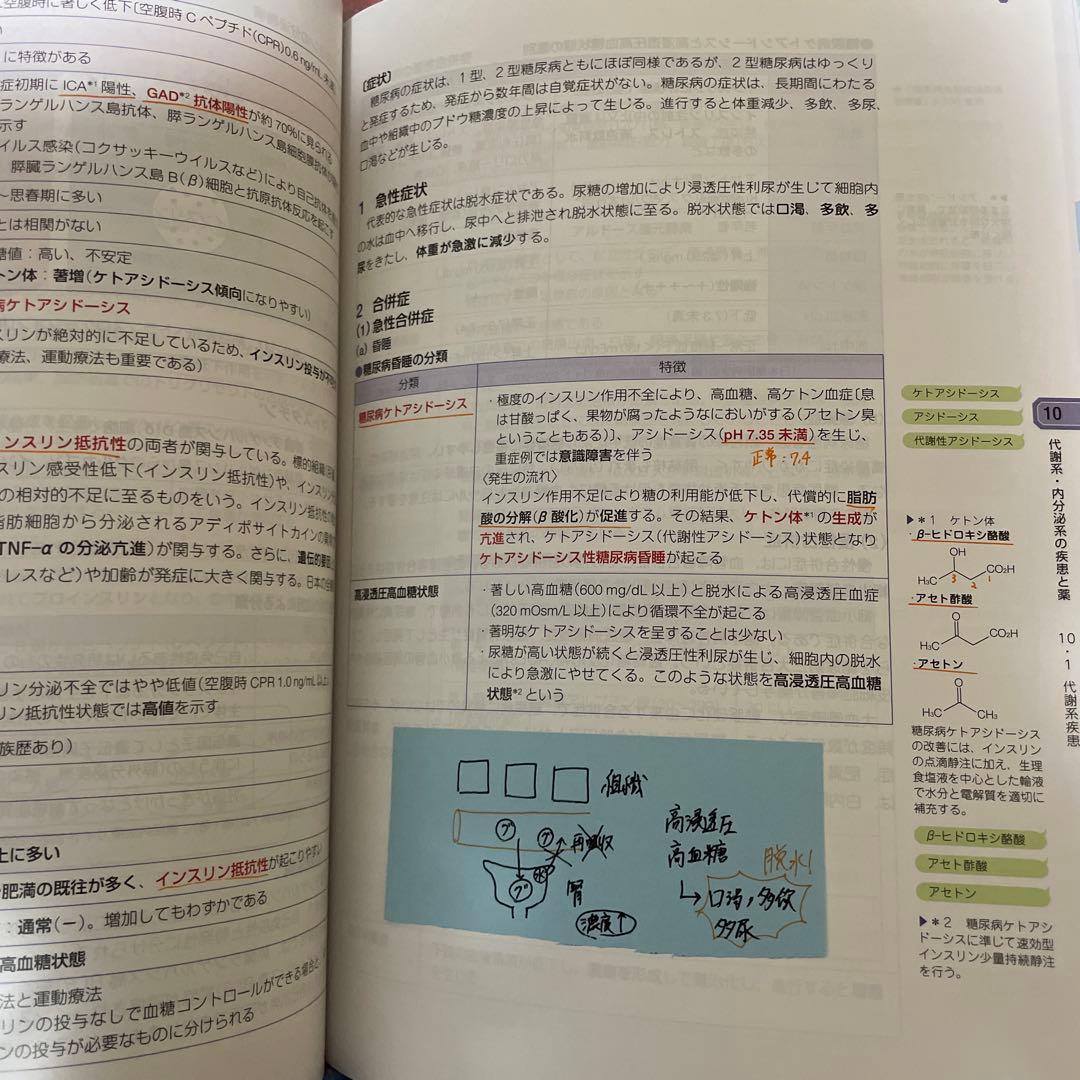 空腹時に著しく低下〔空腹時 C ペプチド(CPR)0.6 ng/mL 未満
に特徴がある
症初期に ICA*1 陽性、GAD*2 抗体陽性が約 70%に見られる
ランゲルハンス島抗体、膵ランゲルハンス島細胞膜抗体
示す
イルス感染(コクサッキーウイルスなど)により自己抗体
膵臓ランゲルハンス島 B(β)細胞と抗原抗体反応を起こす
～思春期に多い
とは相関がない
糖値：高い、不安定
トン体：著増(ケトアシドーシス傾向になりやすい)
病ケトアシドーシス
スリンが絶対的に不足しているため、インスリン投与が
療法、運動療法も重要である)
インスリン抵抗性の両者が関与している。標的組織
スリン感受性低下(インスリン抵抗性)や、インスリン
の相対的不足に至るものをいう。インスリン抵抗性の
脂肪細胞から分泌されるアディポサイトカインの
TNF-α の分泌亢進)が関与する。さらに、遺伝的
トレスなど)や加齢が発症に大きく関与する。日本の
リン分泌不全ではやや低値(空腹時 CPR 1.0 ng/mL 以上)
リン抵抗性状態では高値を示す
族歴あり)
上に多い
肥満の既往が多く、インスリン抵抗性が起こりやすい
：通常(－)。増加してもわずかである
高血糖状態
法と運動療法
リンの投与なしで血糖コントロールができる場合と、
ンの投与が必要なものに分けられる
〔症状〕
糖尿病の症状は、1 型、2 型糖尿病ともにほぼ同様であるが、2 型糖尿病はゆっくり
と発症するため、発症から数年間は自覚症状がない。糖尿病の症状は、長期間にわたる
血中や組織中のブドウ糖濃度の上昇によって生じる。進行すると体重減少、多飲、多尿、
口渇などが生じる。
1 急性症状
代表的な急性症状は脱水症状である。尿糖の増加により浸透圧性利尿が生じて細胞内
の水は血中へ移行し、尿中へと排泄され脱水状態に至る。脱水状態では口渇、多飲、多
尿をきたし、体重が急激に減少する。
2 合併症
(1) 急性合併症
(a) 昏睡
●糖尿病昏睡の分類
分類
特徴
糖尿病ケトアシドーシス
・極度のインスリン作用不全により、高血糖、高ケトン血症〔息
は甘酸っぱく、果物が腐ったようなにおいがする(アセトン臭
ということもある)〕、アシドーシス(pH 7.35 未満)を生じ、
重症例では意識障害を伴う
正常：7.4
〈発生の流れ〉
インスリン作用不足により糖の利用能が低下し、代償的に脂肪
酸の分解(β 酸化)が促進する。その結果、ケトン体*1 の生成が
亢進され、ケトアシドーシス(代謝性アシドーシス)状態となり
ケトアシドーシス性糖尿病昏睡が起こる
高浸透圧高血糖状態
・著しい高血糖(600 mg/dL 以上)と脱水による高浸透圧血症
(320 mOsm/L 以上)により循環不全が起こる
・著明なケトアシドーシスを呈することは少ない
・尿糖が高い状態が続くと浸透圧性利尿が生じ、細胞内の脱水
により急激にやせてくる。このような状態を高浸透圧高血糖
状態*2 という
組織
ブ
ブ
再吸収
ブ
水
腎
濃度↑
高浸透圧
高血糖
脱水！
↳口渇、多飲
多尿
ケトアシドーシス
アシドーシス
代謝性アシドーシス
▶＊1 ケトン体
・β-ヒドロキシ酪酸
OH
H₃C 3 2 1 CO₂H
・アセト酢酸
O
H₃C CO₂H
・アセトン
O
H₃C CH₃
糖尿病ケトアシドーシス
の改善には、インスリン
の点滴静注に加え、生理
食塩液を中心とした輸液
で水分と電解質を適切に
補充する。
β-ヒドロキシ酪酸
アセト酢酸
アセトン
▶＊2 糖尿病ケトアシ
ドーシスに準じて速効型
インスリン少量持続静注
を行う。
10
代謝系・内分泌系の疾患と薬
10・1 代謝系疾患